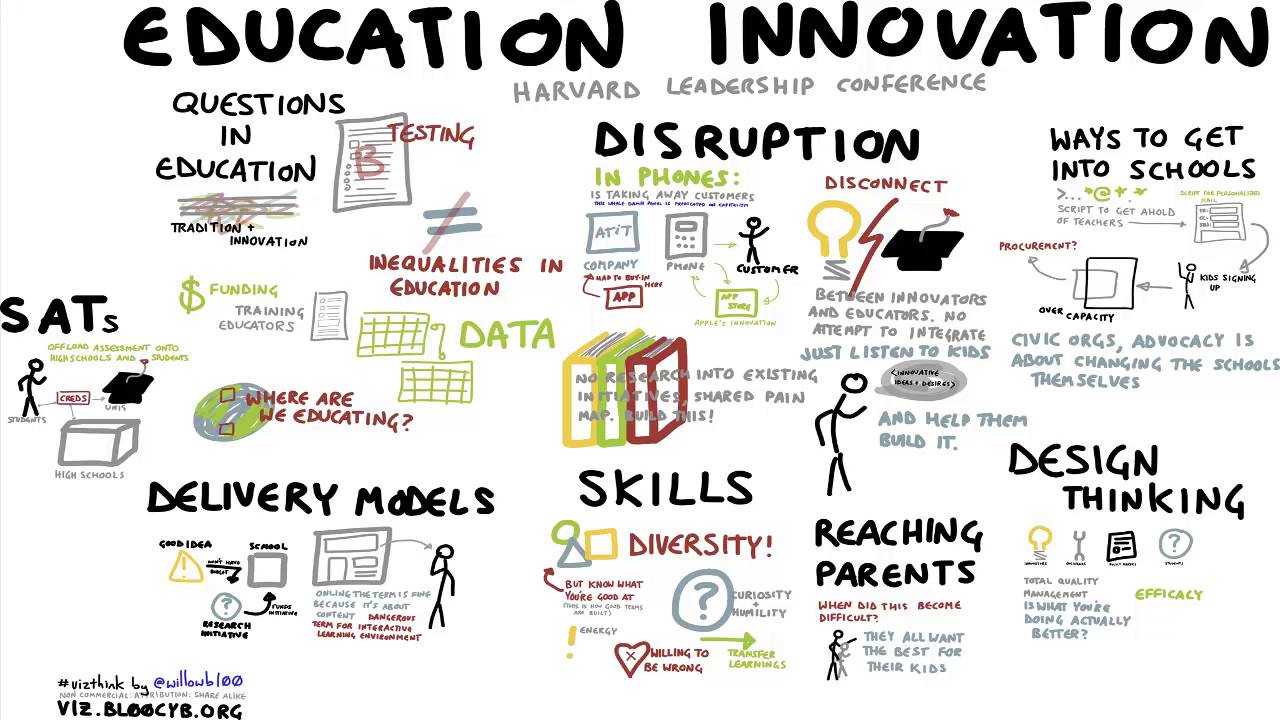 EDUCATION INNOVATION
HARVARD LEADERSHIP CONFERENCE
QUESTIONS
IN
EDUCATION
B
TESTING
TRADITION +
INNOVATION
INEQUALITIES IN
EDUCATION
$ FUNDING
TRAINING
EDUCATORS
DATA
WHERE ARE
WE EDUCATING?
SATs
OFFLOAD ASSESSMENT ONTO
HIGH SCHOOLS AND STUDENTS
CREDS
UNIS
STUDENTS
HIGH SCHOOLS
DELIVERY MODELS
GOOD IDEA
!
DON'T HAVE
BUDGET
SCHOOL
?
FUNDS
INITIATIVE
RESEARCH
INITIATIVE
ONLINE THE TERM IS FINE
BECAUSE IT'S ABOUT
CONTENT DANGEROUS
TERM FOR INTERACTIVE
LEARNING ENVIRONMENT
DISRUPTION
IN PHONES:
IS TAKING AWAY CUSTOMERS
THIS WHOLE DAMN PANEL IS PREDICATED ON CAPITALISM
AT&T
COMPANY
PHONE
CUSTOMER
HAD TO BUY-IN
HERE
APP
APP
STORE
APPLE'S INNOVATION
NO RESEARCH INTO EXISTING
INITIATIVES, SHARED PAIN
MAP. BUILD THIS!
DISCONNECT
BETWEEN INNOVATORS
AND EDUCATORS. NO
ATTEMPT TO INTEGRATE
JUST LISTEN TO KIDS
<INNOVATIVE
IDEAS + DESIRES>
AND HELP THEM
BUILD IT.
WAYS TO GET
INTO SCHOOLS
>... *@*.*
SCRIPT TO GET AHOLD
OF TEACHERS
SCRIPT FOR PERSONALIZED
MAIL
TO:
CC:
SUB:
PROCUREMENT?
KIDS SIGNING
UP
OVER CAPACITY
CIVIC ORGS, ADVOCACY IS
ABOUT CHANGING THE SCHOOLS
THEMSELVES
SKILLS
DIVERSITY!
BUT KNOW WHAT
YOU'RE GOOD AT
(THIS IS HOW GOOD TEAMS
ARE BUILT)
?
CURIOSITY
+
HUMILITY
! ENERGY
WILLING TO
BE WRONG
TRANSFER
LEARNINGS
REACHING
PARENTS
WHEN DID THIS BECOME
DIFFICULT?
THEY ALL WANT
THE BEST FOR
THEIR KIDS
DESIGN
THINKING
?
INNOVATORS
STUDENTS
TOTAL QUALITY
MANAGEMENT
IS WHAT YOU'RE
DOING ACTUALLY
BETTER?
EFFICACY
#vizthink by @willowbl00
NON COMMERCIAL: ATTRIBUTION: SHARE ALIKE
VIZ.BL00CYB.ORG